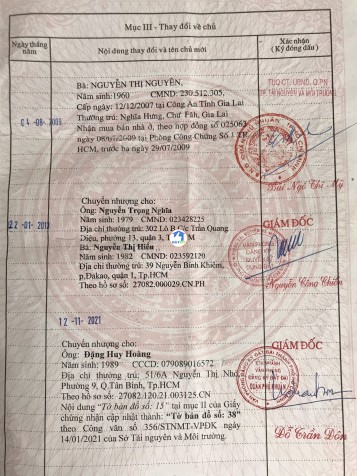 Mục III - Thay đổi về chủ
Ngày tháng năm
Nội dung thay đổi và tên chủ mới
Xác nhận
(Ký đóng dấu)
Bà: NGUYỄN THỊ NGUYÊN.
Năm sinh:1960 CMND: 230.512.305,
Cấp ngày: 12/12/2007 tại Công An Tỉnh Gia Lai
Thường trú: Nghĩa Hưng, Chư Păh, Gia Lai
Nhận mua bán nhà ở, theo hợp đồng số 025063
ngày 08/07/2009 tại Phòng Công Chứng Số 1 TP
HCM, trước bạ ngày 29/07/2009
04-08-2009
TUQ CT. UBND. Q.PN
TP TÀI NGUYÊN VÀ MÔI TRƯỜNG
Bùi Ngô Thị Mỹ
22-01-2019
Chuyển nhượng cho:
Ông: Nguyễn Trọng Nghĩa
Năm sinh: 1979 CMND: 023428225
Địa chỉ thường trú: 302 Lô B C/c Trần Quang
Diệu, phường 13, quận 3, TP.HCM
Bà. Nguyễn Thị Hiền
Năm sinh: 1982 CMND: 023592129
Địa chỉ thường trú: 39 Nguyễn Bỉnh Khiêm,
p.Đakao, quận 1, Tp.HCM
Theo hồ sơ số: 27082.000029.CN.PH
GIÁM ĐỐC
Nguyễn Công Chiến
12-11-2021
Chuyển nhượng cho:
Ông: Đặng Huy Hoàng
Năm sinh: 1989 CCCD: 079089016572
Địa chỉ thường trú: 51/6A Nguyễn Thị Nhỏ,
Phường 9, Q.Tân Bình, Tp.HCM
Theo hồ sơ số: 27082.120.21.003125.CN
Nội dung "Tờ bản đồ số: 15" tại mục II của Giấy
chứng nhận cập nhật thành: "Tờ bản đồ số: 38"
theo Công văn số 356/STNMT-VPĐK ngày
14/01/2021 của Sở Tài nguyên và Môi trường.
GIÁM ĐỐC
CHI NHÁNH
VĂN PHÒNG
ĐĂNG KÝ ĐẤT ĐAI
QUẬN PHÚ NHUẬN
Đỗ Trần Đôn